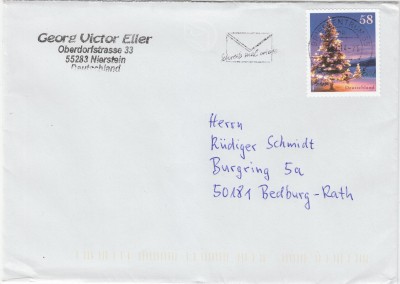 Georg Victor Eller
Oberdorfstrasse 33
55283 Nierstein
Deutschland
58
Deutschland
Herrn
Rüdiger Schmidt
Burgring 5a
50181 Bedburg-Rath